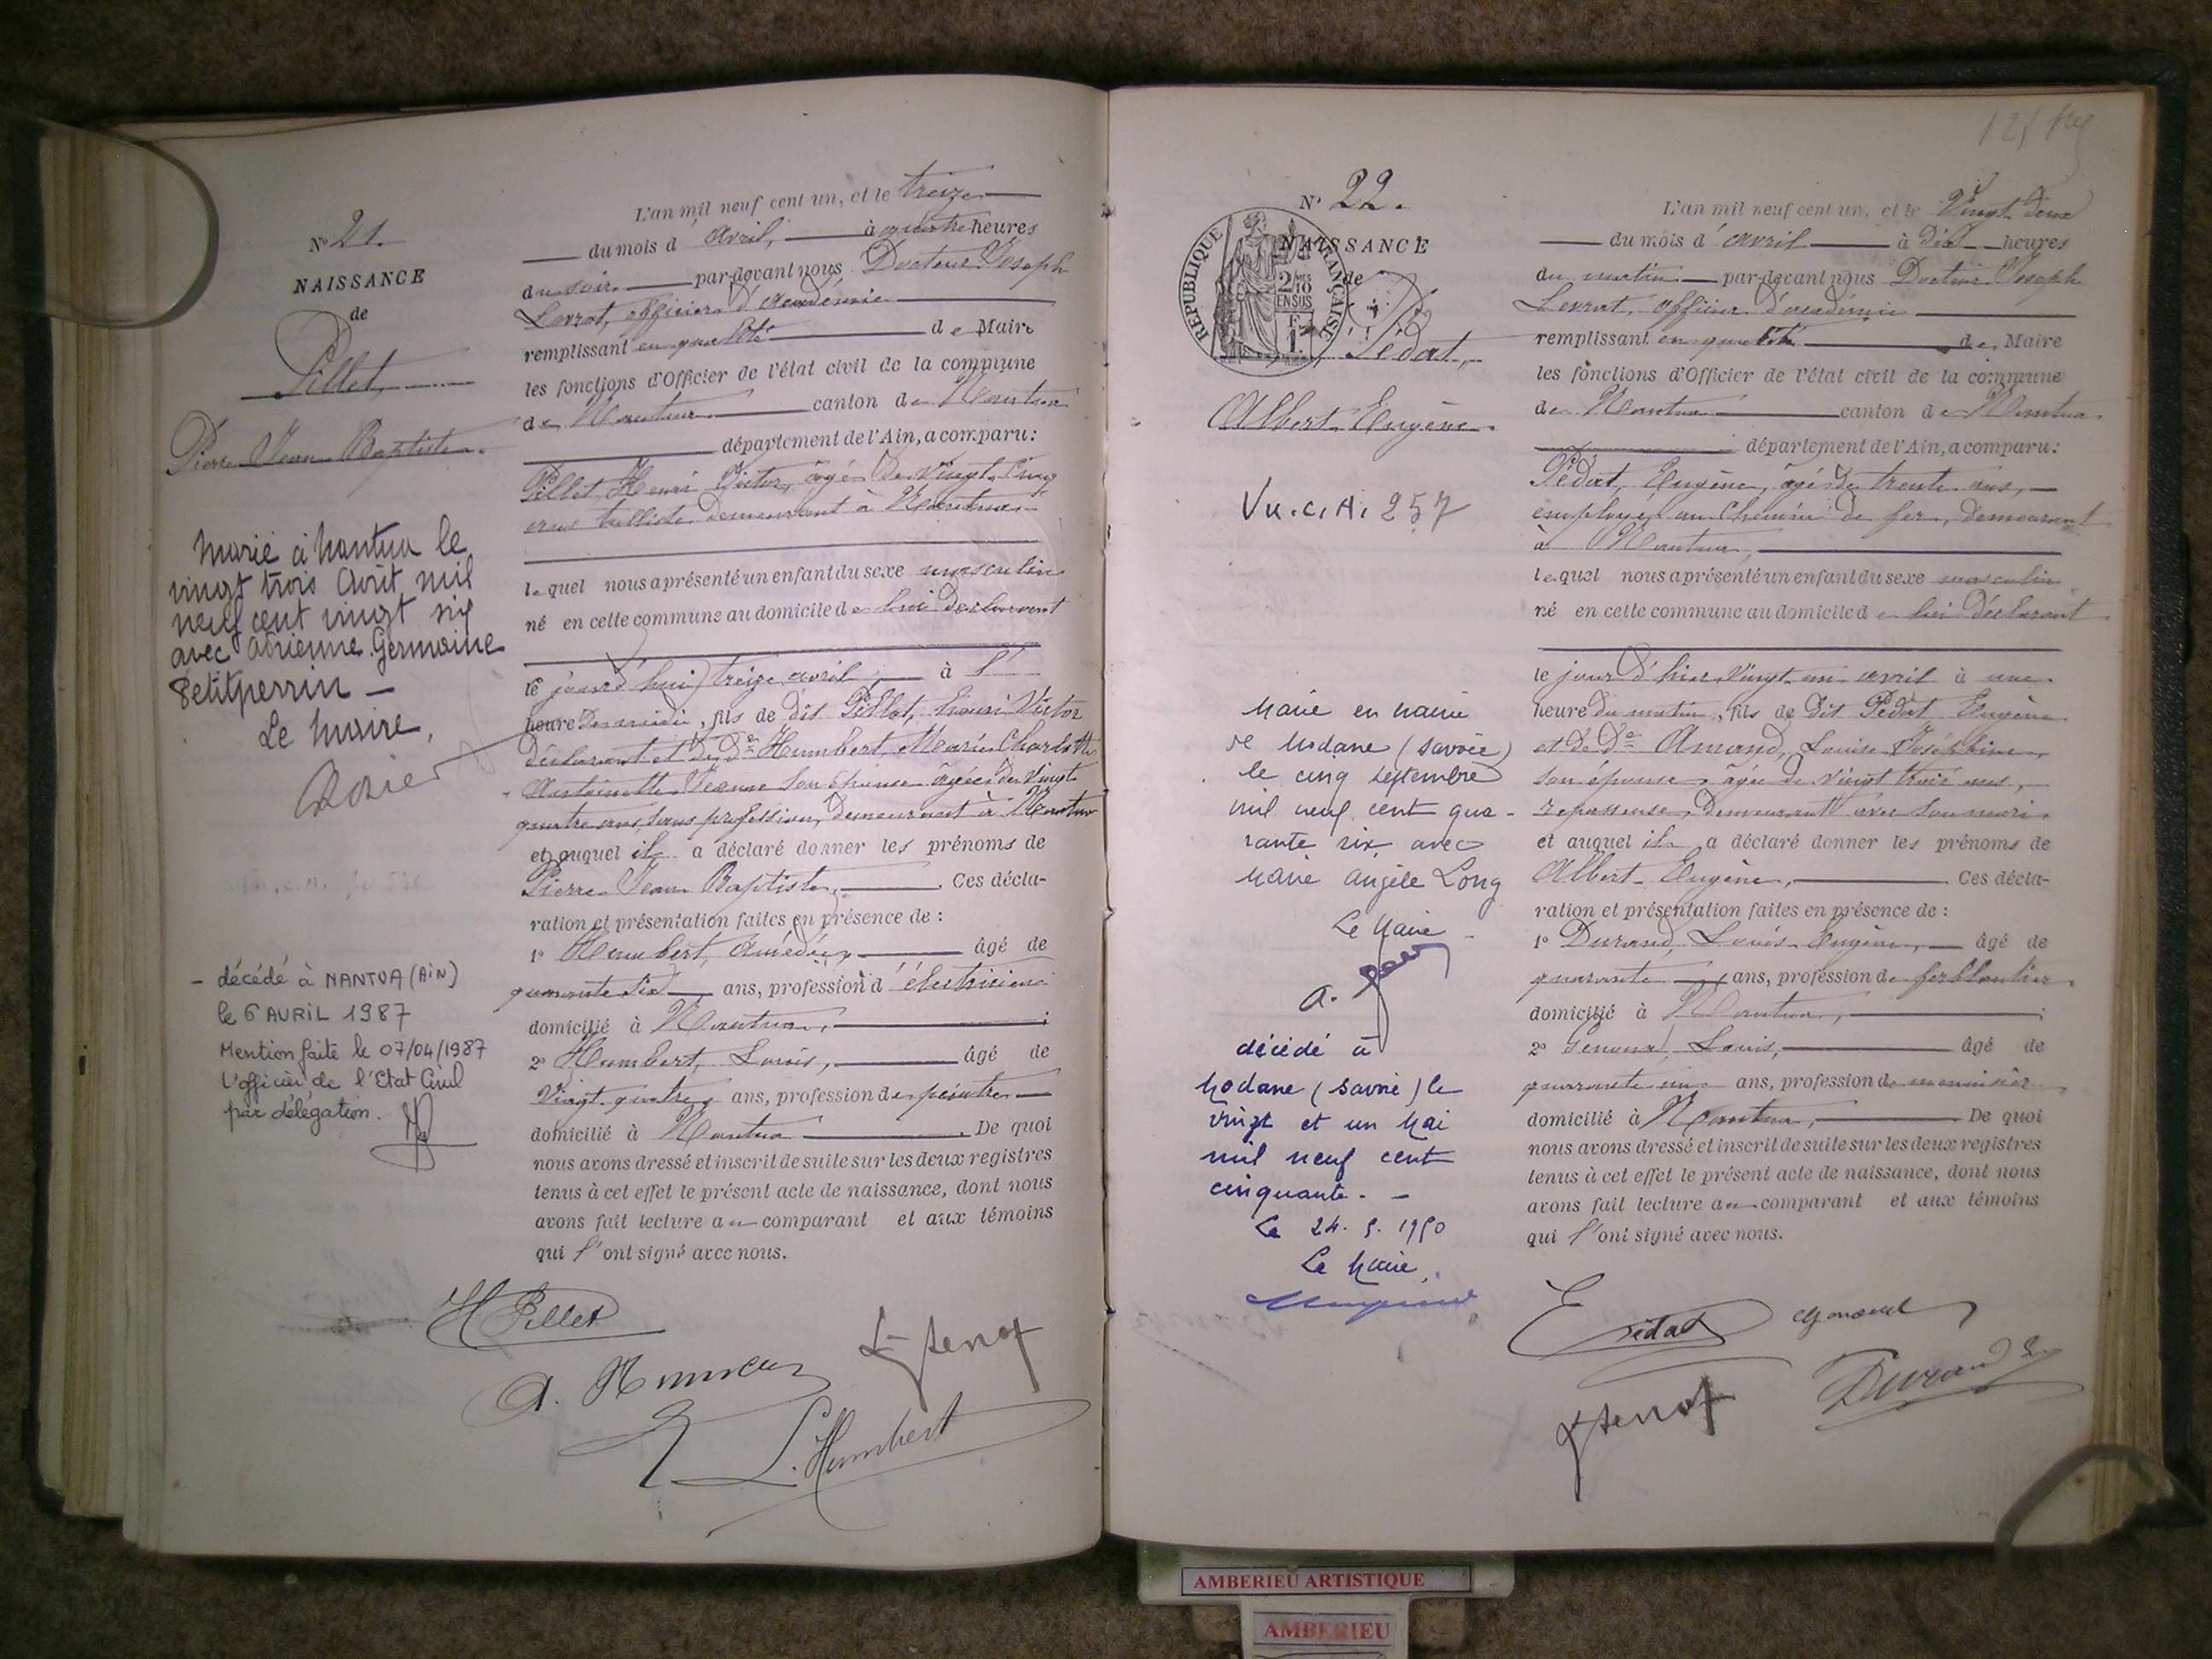 N° 21.
NAISSANCE
de
Pillet,
Pierre Jean Baptiste.
Marié à Nantua le
vingt trois Août mil
neuf cent vingt six
avec Adrienne Germaine
Petitperrin —
Le Maire,
— décédé à NANTUA (AIN)
le 6 AVRIL 1987
Mention faite le 07/04/1987
L'officier de l'Etat Civil
par délégation.
L'an mil neuf cent un, et le treize
du mois d'avril, à quatre heures
du soir par-devant nous Docteur Joseph
Levrat, officier d'académie
remplissant en qualité de Maire
les fonctions d'Officier de l'état civil de la commune
de Nantua canton de Nantua
département de l'Ain, a comparu :
Pillet, Henri Victor, âgé de vingt-cinq
ans demeurant à Nantua
lequel nous a présenté un enfant du sexe masculin
né en cette commune au domicile de lui déclarant
le jourd'hui treize avril, à
heure de midi, fils de dit Pillet, Henri Victor
déclarant et de De Humbert, Marie Charlotte
Antoinette Jeanne son épouse âgée de vingt
quatre ans, sans profession, demeurant à Nantua
et auquel il a déclaré donner les prénoms de
Pierre Jean Baptiste, Ces décla-
ration et présentation faites en présence de :
1° Humbert, Amédée, âgé de
ans, profession d'électricien
domicilié à Nantua, ;
2° Humbert, Louis, âgé de
vingt-quatre ans, profession de peintre
domicilié à Nantua. De quoi
nous avons dressé et inscrit de suite sur les deux registres
tenus à cet effet le présent acte de naissance, dont nous
avons fait lecture au comparant et aux témoins
qui l'ont signé avec nous.
H Pillet
L. Humbert
N° 22.
RÉPUBLIQUE FRANÇAISE
2/10
EN SUS
NAISSANCE
de
Pédat,
Albert Eugène.
Vu. C. A. 257
Marié en mairie
de Modane (Savoie)
le cinq septembre
mil neuf cent qua-
rante six avec
Marie Angèle Long
Le Maire
décédé à
Modane (Savoie) le
vingt et un Mai
mil neuf cent
cinquante. —
Le 24. 5. 1950
Le Maire,
L'an mil neuf cent un, et le vingt-deux
du mois d'avril à dix heures
du matin par-devant nous Docteur Joseph
Levrat, officier d'académie
remplissant en qualité de Maire
les fonctions d'Officier de l'état civil de la commune
de Nantua canton de Nantua
département de l'Ain, a comparu :
Pédat, Eugène, âgé de trente ans,
employé au Chemin de fer, demeurant
à Nantua,
lequel nous a présenté un enfant du sexe masculin
né en cette commune au domicile de lui déclarant
le jour d'hier vingt-un avril à une
heure du matin, fils de dit Pédat, Eugène
et de De Amand, Louise Joséphine,
son épouse, âgée de vingt trois ans,
repasseuse, demeurant avec son mari
et auquel il a déclaré donner les prénoms de
Albert Eugène, Ces décla-
ration et présentation faites en présence de :
1° Durand, Louis Eugène, âgé de
quarante ans, profession de ferblantier
domicilié à Nantua, ;
2° Louis, âgé de
quarante un ans, profession de menuisier
domicilié à Nantua, De quoi
nous avons dressé et inscrit de suite sur les deux registres
tenus à cet effet le présent acte de naissance, dont nous
avons fait lecture au comparant et aux témoins
qui l'ont signé avec nous.
E Pédat
Durand
AMBERIEU ARTISTIQUE
AMBERIEU